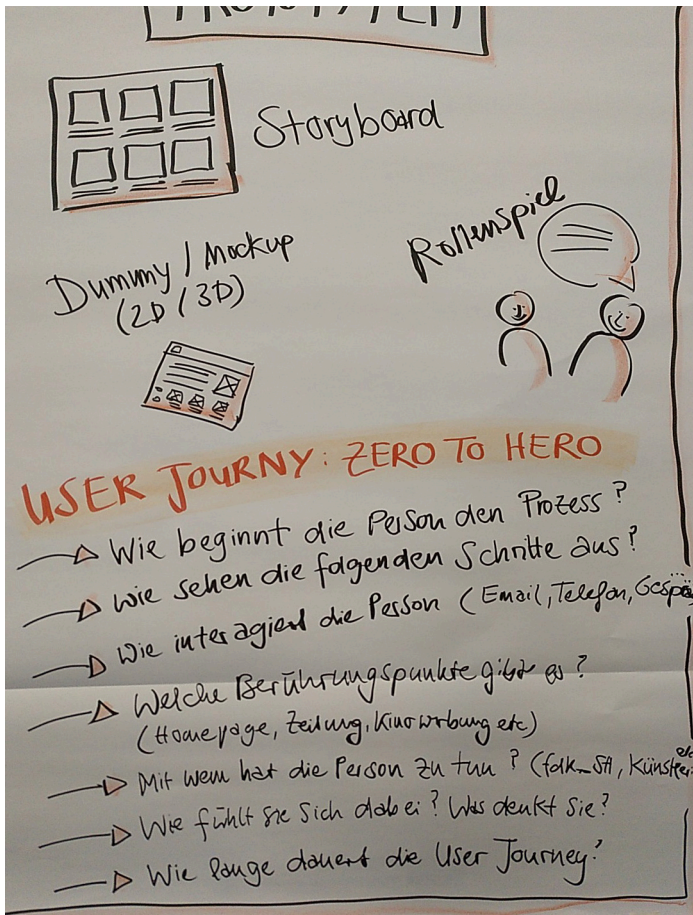 Storyboard
Rollenspiel
Dummy / Mockup
(2D / 3D)
USER JOURNY: ZERO TO HERO
Wie beginnt die Person den Prozess?
Wie sehen die folgenden Schritte aus?
Wie interagiert die Person (Email, Telefon,
Welche Berührungspunkte gibt es?
(Homepage, Zeitung, Kinowerbung etc)
Mit wem hat die Person zu tun? (
Wie fühlt sie sich dabei? Was denkt sie?
Wie lange dauert die User Journey?